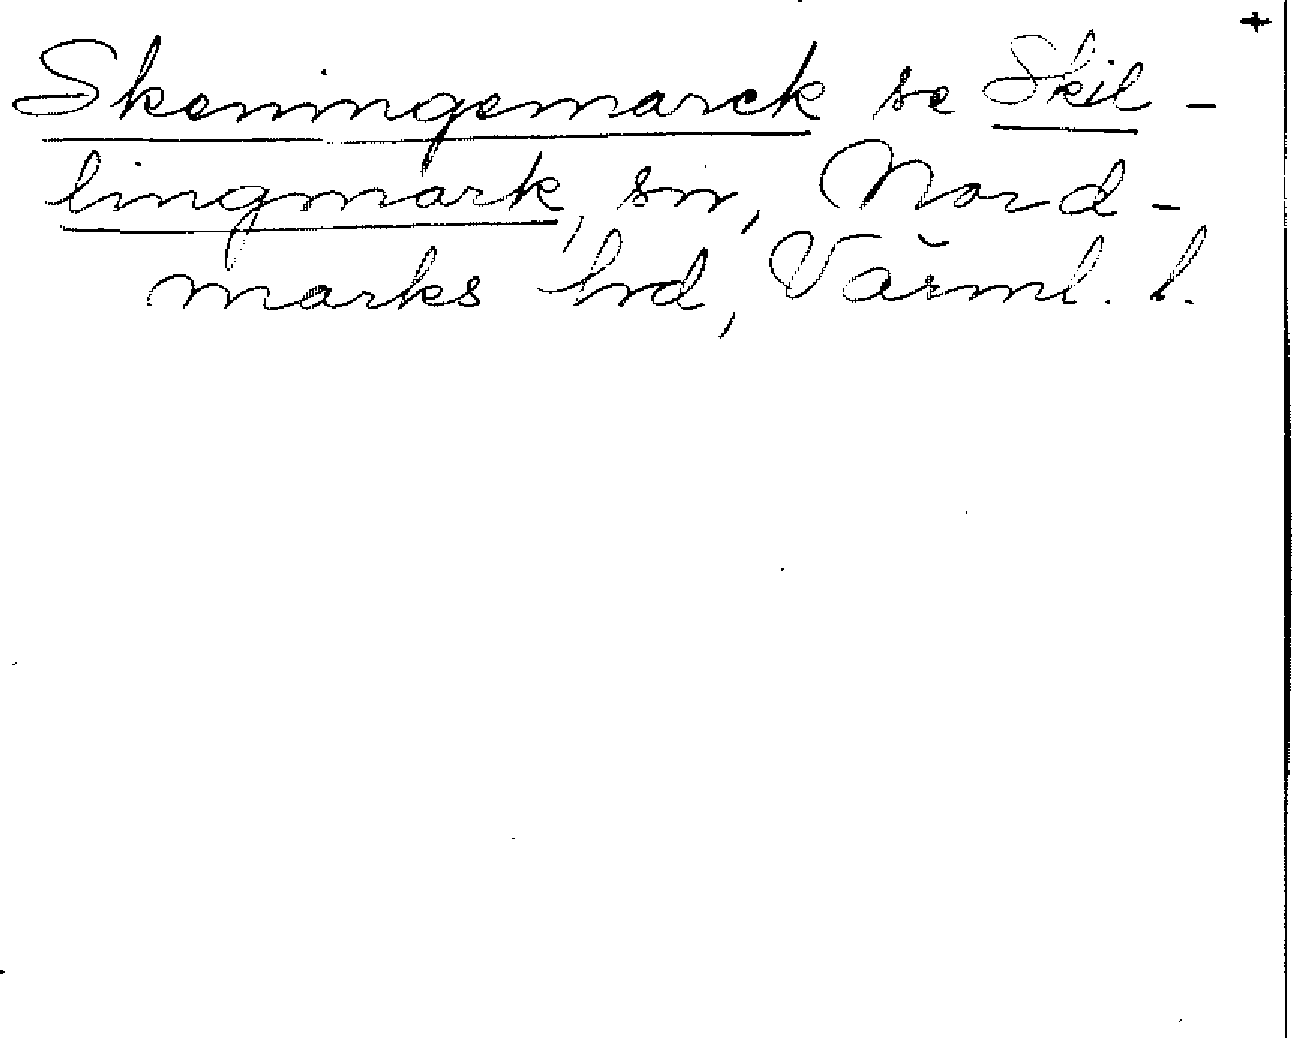 +
Skeningemarck se Skil-
lingmark, sn, Nord-
marks hd, Värml. l.